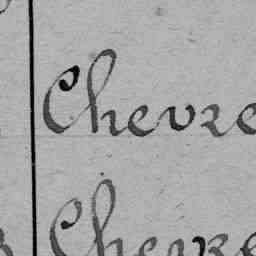 Chevre
Chevre